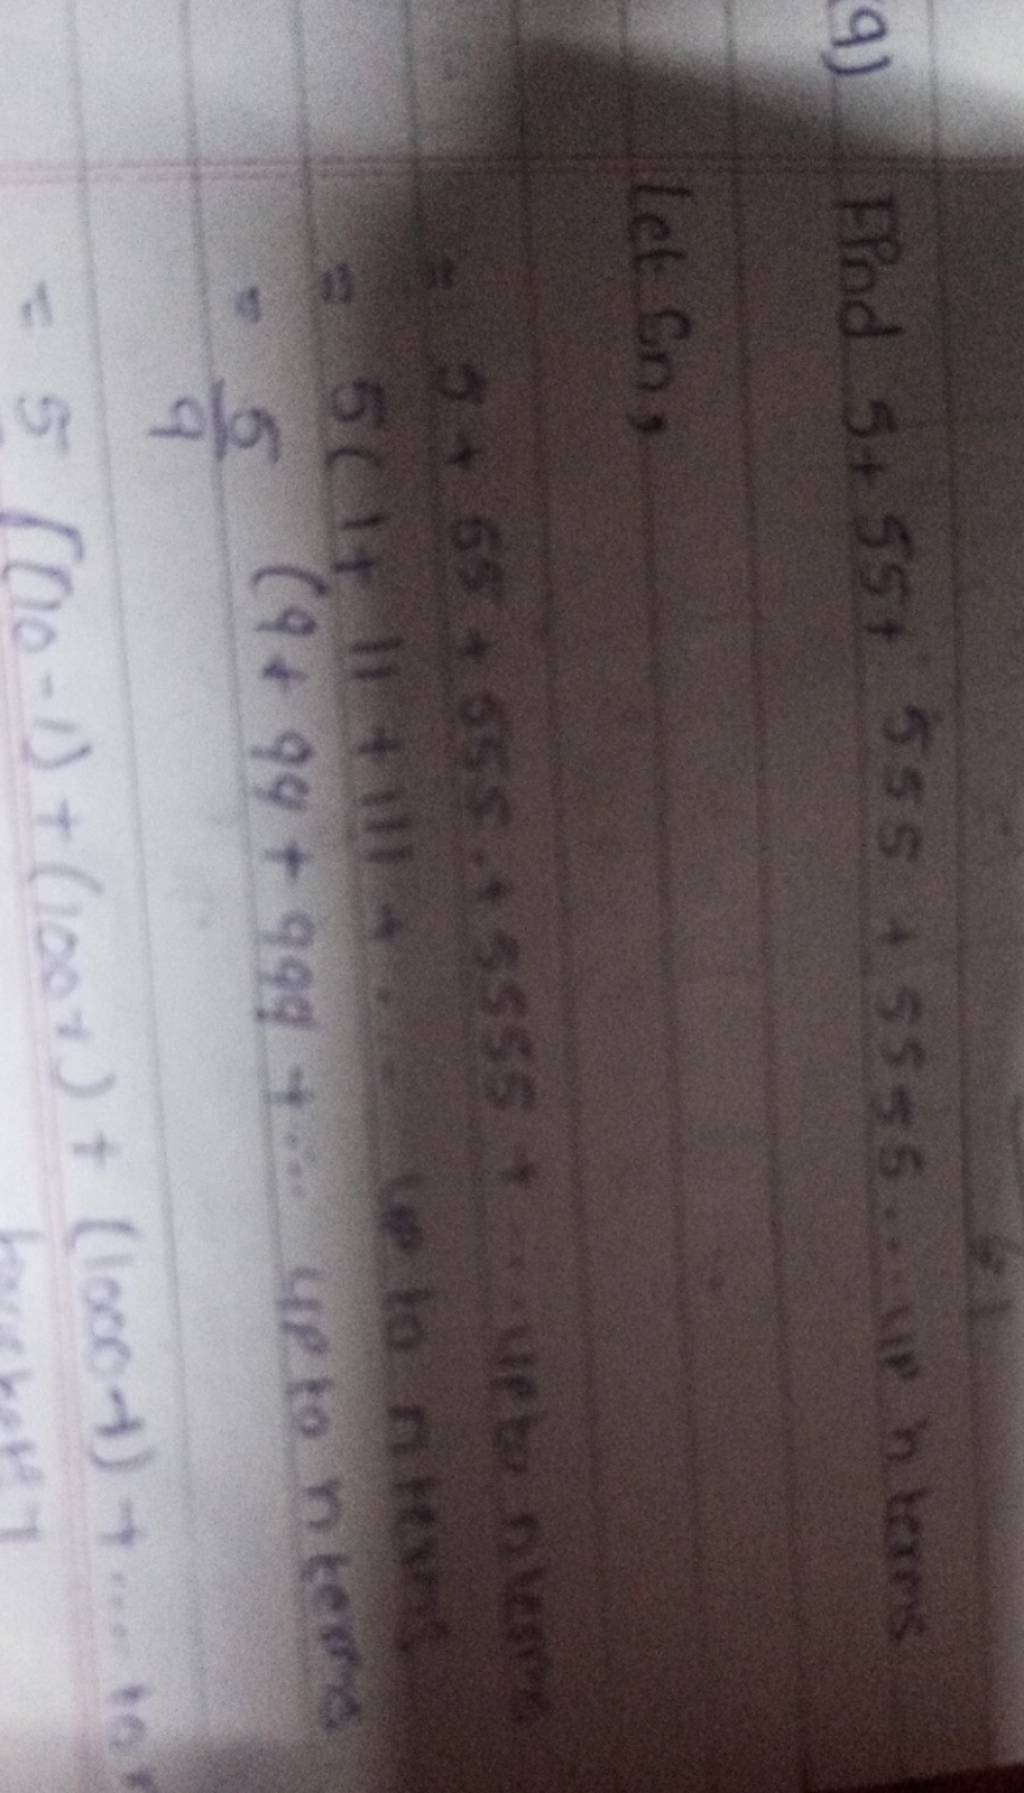 (9) Find 5+ 55+ 555 + 5555... up n terms
Let Sn,
= 5+ 55 + 555 + 5555 + ... upto n terms
= 5( 1+ 11 + 111 + ... up to n terms
= 5/9 (9+ 99 + 999 + .... up to n terms
= 5 [(10-1) + (100-1) + (1000-1) + .... to